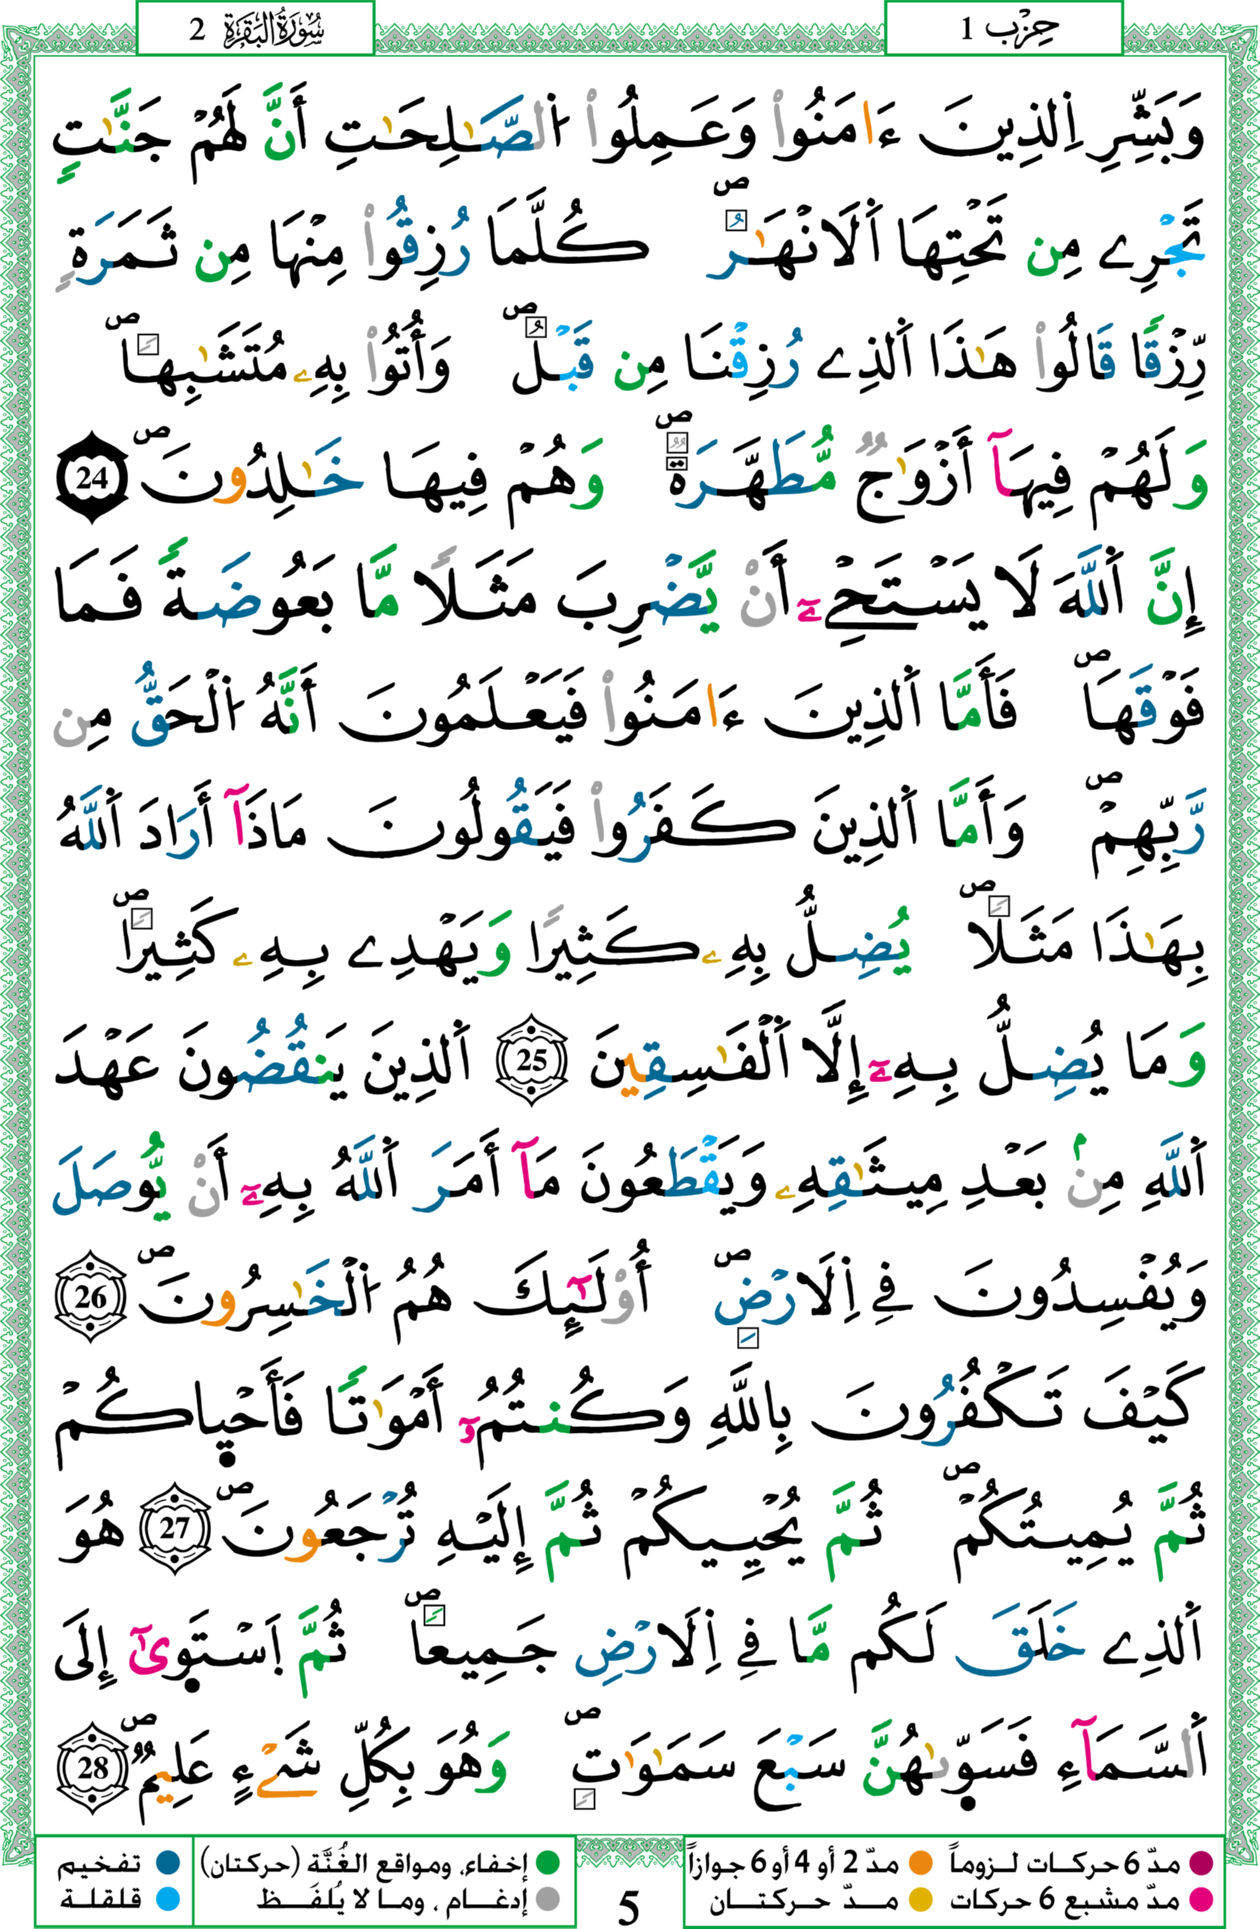 حِزْب 1
سُورَةُ البَقَرَةِ 2
وَبَشِّرِ اِ۬لذِينَ ءَامَنُواْ وَعَمِلُواْ اُ۬لصَّٰلِحَٰتِ أَنَّ لَهُمْ جَنَّٰتٖ
تَجْرِے مِن تَحْتِهَا اَ۬لَانْهَٰرُ ۖ كُلَّمَا رُزِقُواْ مِنْهَا مِن ثَمَرَةٖ
رِّزْقاٗ قَالُواْ هَٰذَا اَ۬لذِے رُزِقْنَا مِن قَبْلُ ۖ وَأُتُواْ بِهِۦ مُتَشَٰبِهاٗ ۖ
وَلَهُمْ فِيهَآ أَزْوَٰجٞ مُّطَهَّرَةٞ ۖ وَهُمْ فِيهَا خَٰلِدُونَ ۖ 24
إِنَّ اَ۬للَّهَ لَا يَسْتَحْيِۦٓ أَنْ يَّضْرِبَ مَثَلاٗ مَّا بَعُوضَةٗ فَمَا
فَوْقَهَا ۖ فَأَمَّا اَ۬لذِينَ ءَامَنُواْ فَيَعْلَمُونَ أَنَّهُ اُ۬لْحَقُّ مِن
رَّبِّهِمْ ۖ وَأَمَّا اَ۬لذِينَ كَفَرُواْ فَيَقُولُونَ مَاذَآ أَرَادَ اَ۬للَّهُ
بِهَٰذَا مَثَلاٗ ۖ يُضِلُّ بِهِۦ كَثِيراٗ وَيَهْدِے بِهِۦ كَثِيراٗ
وَمَا يُضِلُّ بِهِۦٓ إِلَّا اَ۬لْفَٰسِقِينَ 25 اَ۬لذِينَ يَنقُضُونَ عَهْدَ
اَ۬للَّهِ مِنۢ بَعْدِ مِيثَٰقِهِۦ وَيَقْطَعُونَ مَآ أَمَرَ اَ۬للَّهُ بِهِۦٓ أَنْ يُّوصَلَ
وَيُفْسِدُونَ فِے اِ۬لَارْضِ ۖ أُوْلَٰٓئِكَ هُمُ اُ۬لْخَٰسِرُونَ ۖ 26
كَيْفَ تَكْفُرُونَ بِاللَّهِ وَكُنتُمُۥٓ أَمْوَٰتاٗ فَأَحْيٜاكُمْ
ثُمَّ يُمِيتُكُمْ ۖ ثُمَّ يُحْيِيكُمْ ثُمَّ إِلَيْهِ تُرْجَعُونَ ۖ 27 هُوَ
اَ۬لذِے خَلَقَ لَكُم مَّا فِے اِ۬لَارْضِ جَمِيعاٗ ۖ ثُمَّ اَ۪سْتَوٜيٰٓ إِلَى
اَ۬لسَّمَآءِ فَسَوّٜىٰهُنَّ سَبْعَ سَمَٰوَٰتٖ ۖ وَهُوَ بِكُلِّ شَےْءٍ عَلِيمٞ ۖ 28
مدّ 6 حركات لـزوماً
مدّ 2 أو 4 أو 6 جوازاً
إخفاء، ومواقع الغُنَّة (حركتان)
تفخيم
مدّ مشبع 6 حركات
مدّ حركتـان
إدغام ، وما لا يُلفَـظ
قلقلة
5